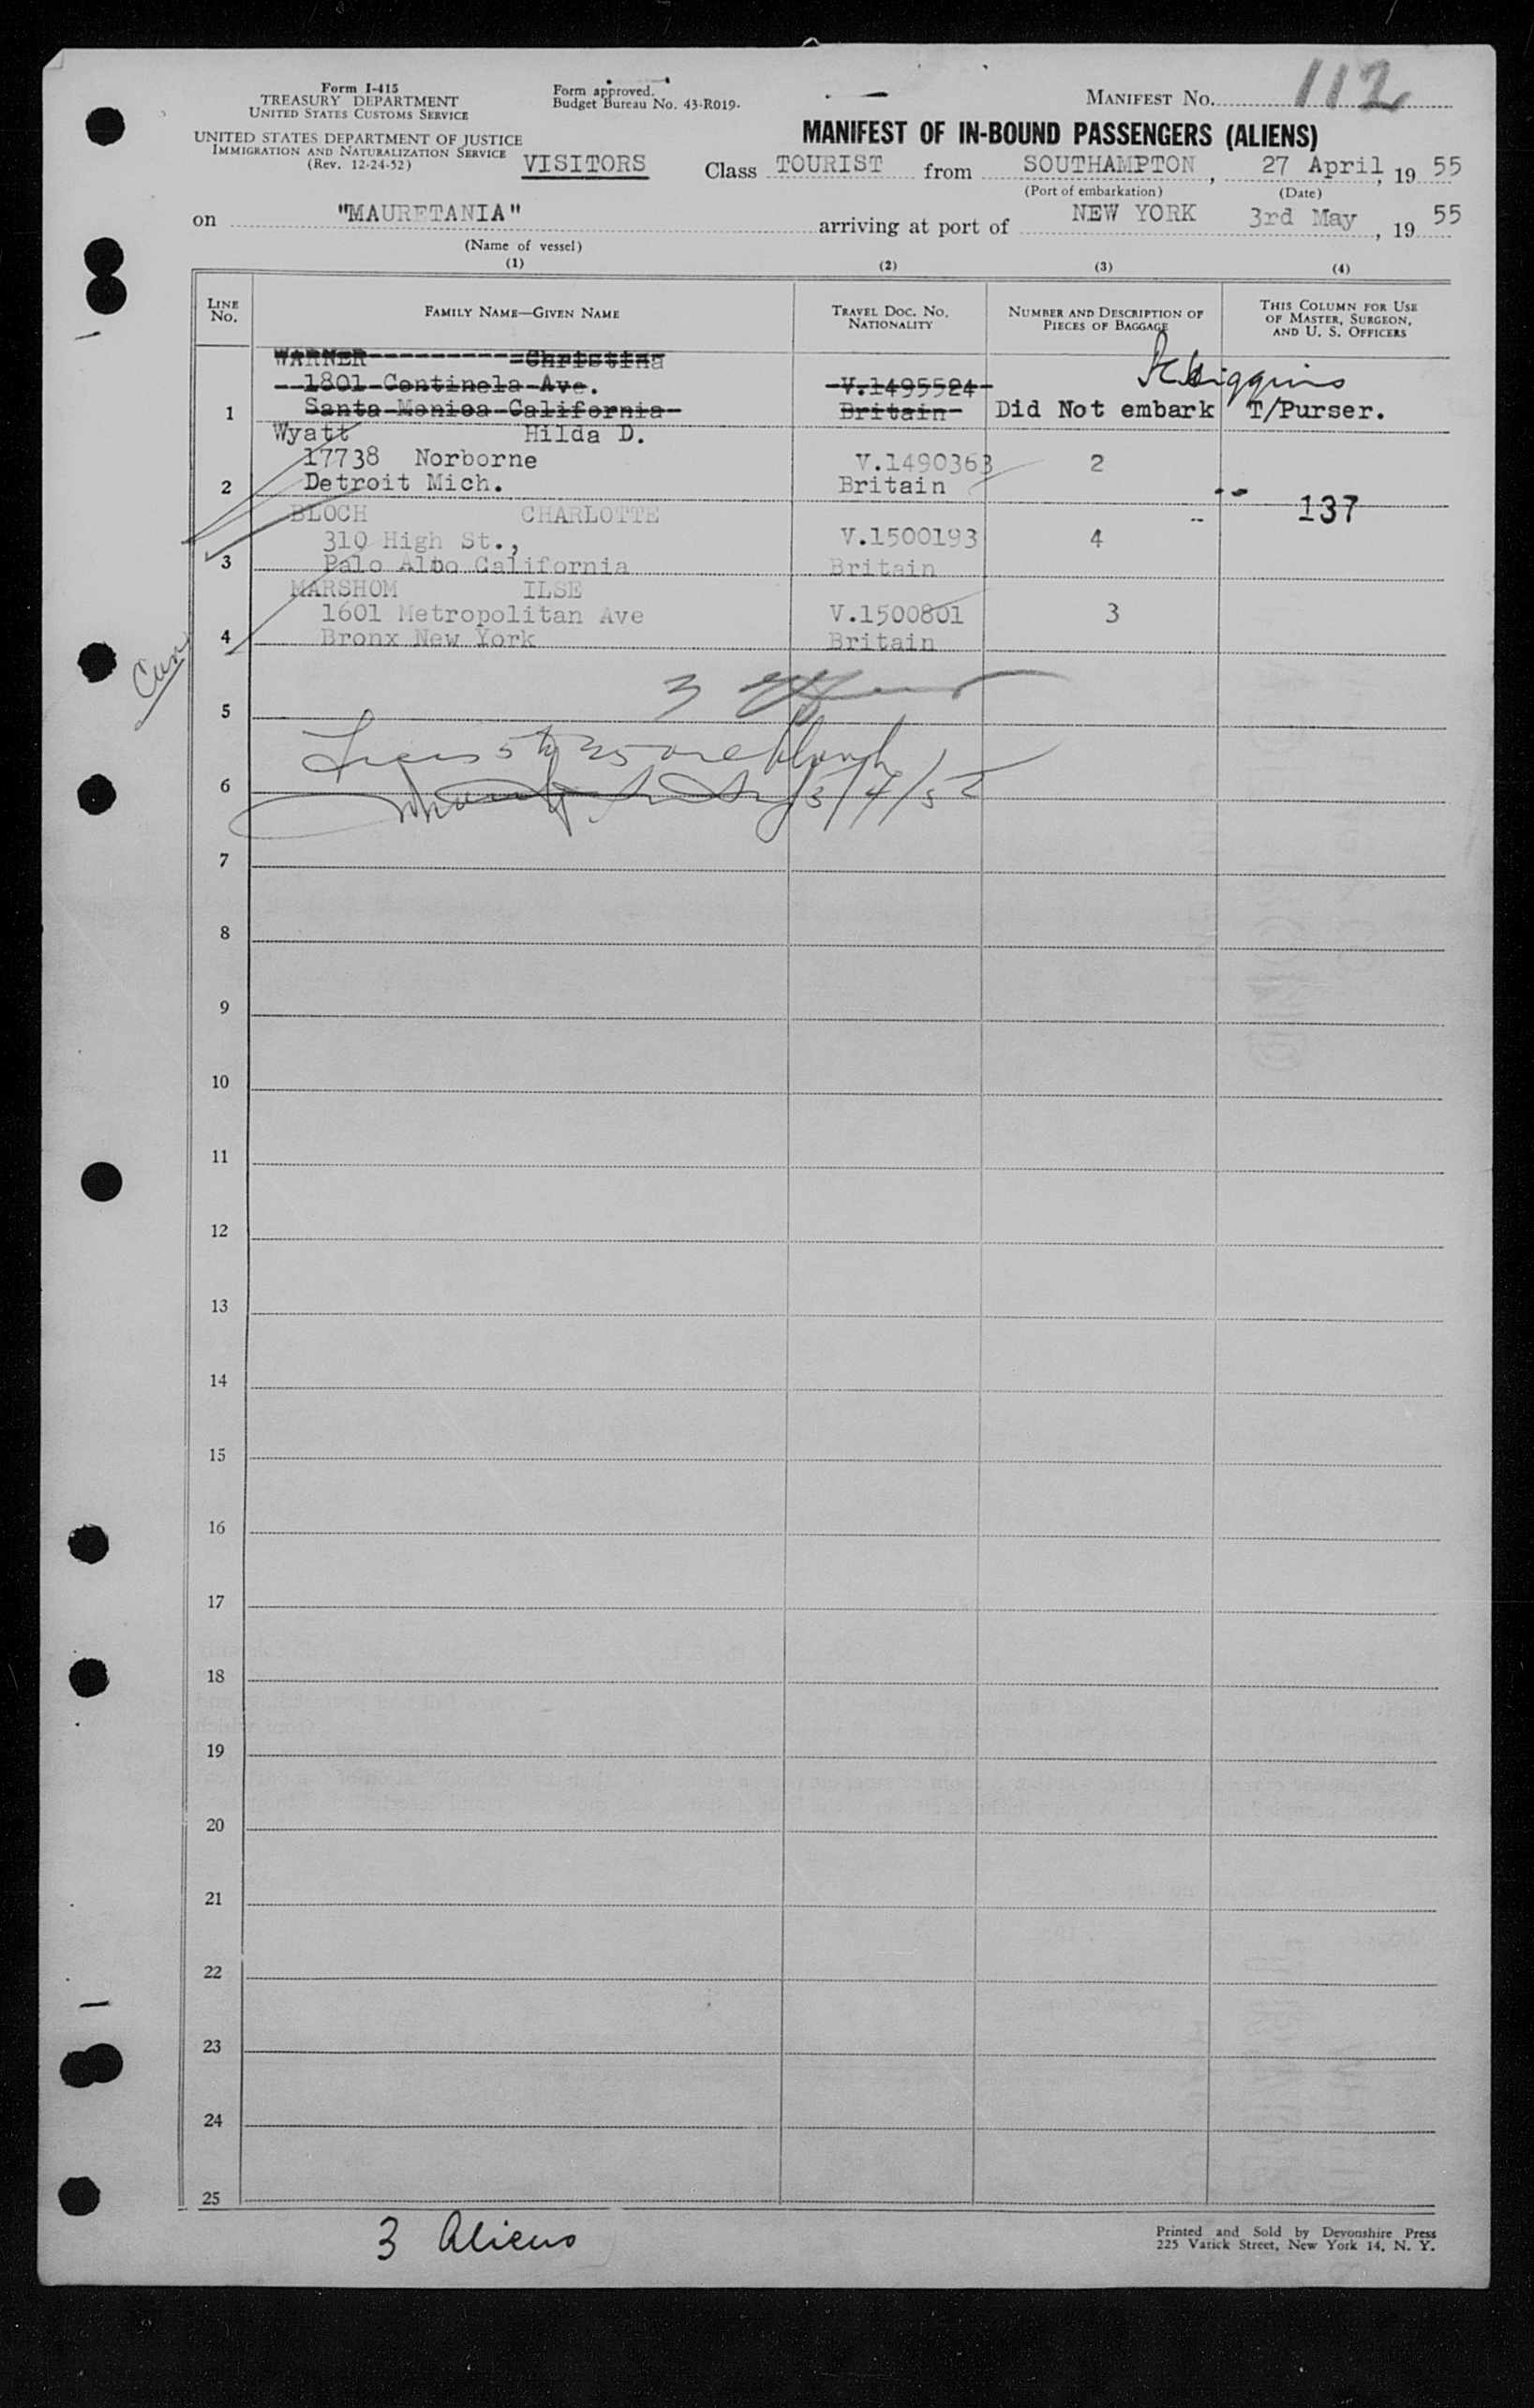 Form I-415
TREASURY DEPARTMENT
UNITED STATES CUSTOMS SERVICE
UNITED STATES DEPARTMENT OF JUSTICE
IMMIGRATION AND NATURALIZATION SERVICE
(Rev. 12-24-52)
Form approved.
Budget Bureau No. 43-R019-
MANIFEST No. 112
MANIFEST OF IN-BOUND PASSENGERS (ALIENS)
VISITORS Class TOURIST from SOUTHAMPTON, 27 April, 19 55
(Port of embarkation) (Date)
on "MAURETANIA" arriving at port of NEW YORK 3rd May, 19 55
(Name of vessel)
(1) (2) (3) (4)
LINE No. FAMILY NAME—GIVEN NAME TRAVEL DOC. No. NATIONALITY NUMBER AND DESCRIPTION OF PIECES OF BAGGAGE THIS COLUMN FOR USE OF MASTER, SURGEON, AND U. S. OFFICERS
WARNER Christina
1801 Centinela Ave. V.1495524 Higgins
1 Santa Monica California Britain Did Not embark T/Purser.
Wyatt Hilda D.
17738 Norborne V.1490363 2
2 Detroit Mich. Britain
137
BLOCH CHARLOTTE
310 High St., V.1500193 4
3 Palo Albo California Britain
MARSHOM ILSE
1601 Metropolitan Ave V.1500801 3
4 Bronx New York Britain
Cun
3
5
6
3/4/55
7
8
9
10
11
12
13
14
15
16
17
18
19
20
21
22
23
24
25
3 Aliens
Printed and Sold by Devonshire Press
225 Varick Street, New York 14, N. Y.